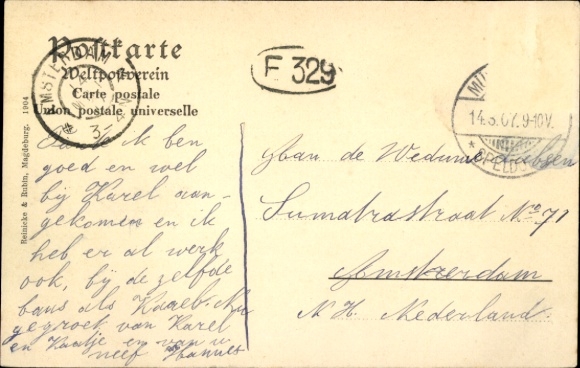 Postkarte
Weltpostverein
Carte postale
Union postale universelle
AMSTERDAM
F 329
14.3.07. 9-10V.
Reinicke & Rubin, Magdeburg. 1904
ik ben
goed en wel
bij Karel aan-
gekomen en ik
heb er al werk
ook, bij de zelfde
baas als Karel. Nu
gegroet van Karel
en Kaatje en van u
neef Hannes
de Weduwe Lubsen
Sumatrastraat No 71
Amsterdam
N. H. Nederland.